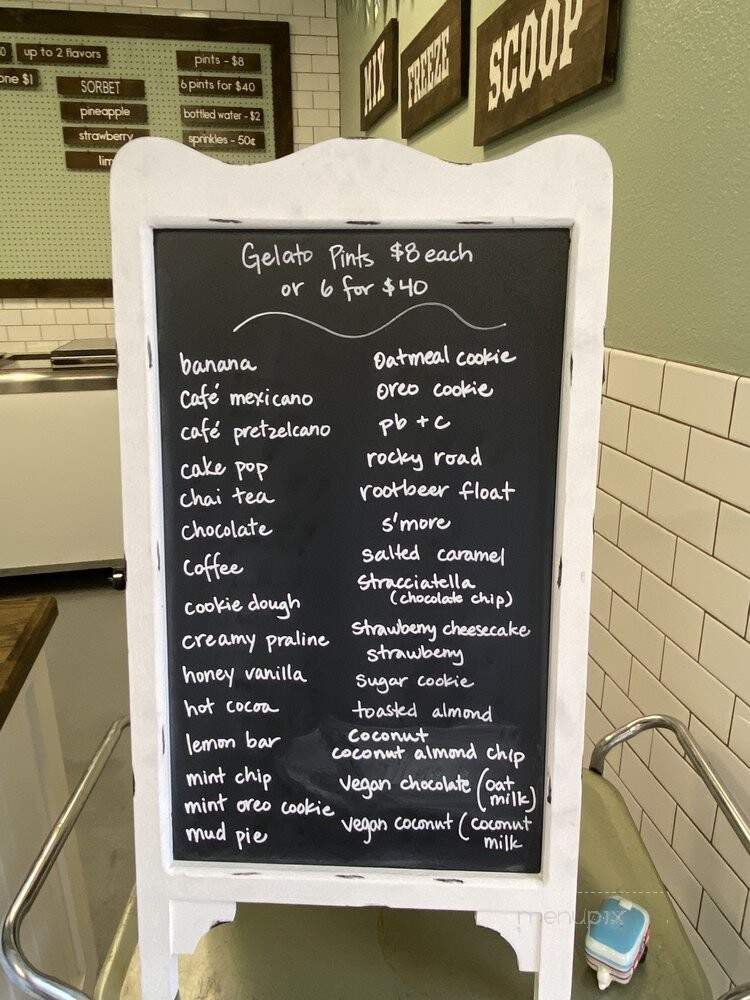 up to 2 flavors
one $1
SORBET
pineapple
strawberry
pints - $8
6 pints for $40
bottled water - $2
sprinkles - 50¢
MIX
FREEZE
SCOOP
Gelato Pints $8 each
or 6 for $40
banana
café mexicano
café pretzelcano
cake pop
chai tea
chocolate
coffee
cookie dough
creamy praline
honey vanilla
hot cocoa
lemon bar
mint chip
mint oreo cookie
mud pie
oatmeal cookie
oreo cookie
pb + c
rocky road
rootbeer float
s'more
salted caramel
stracciatella
(chocolate chip)
strawberry cheesecake
strawberry
sugar cookie
toasted almond
coconut
coconut almond chip
vegan chocolate (oat
milk)
vegan coconut (coconut
milk
menupix